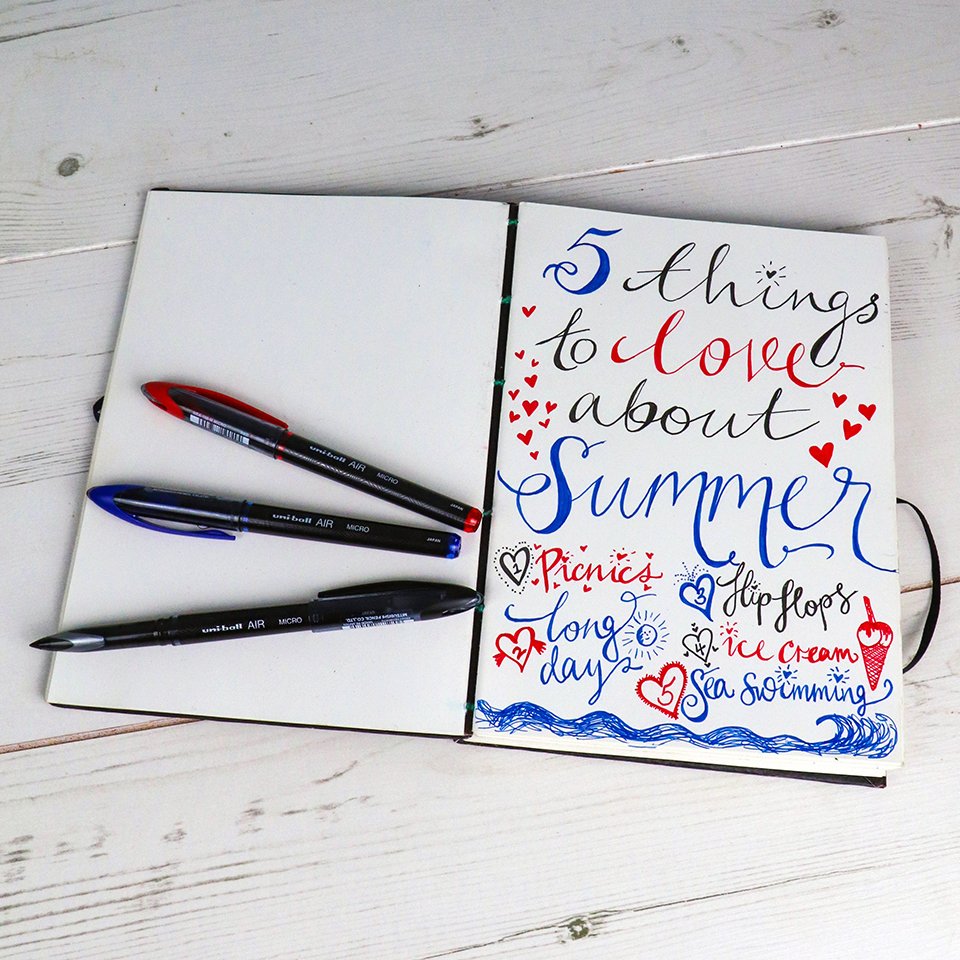 5 things
to love
about
Summer
1 Picnics
2 long
days
3 flip flops
4 ice cream
5 Sea Swimming
uni-ball AIR MICRO
JAPAN
uni-ball AIR MICRO
JAPAN
uni-ball AIR MICRO
MITSUBISHI PENCIL CO., LTD.